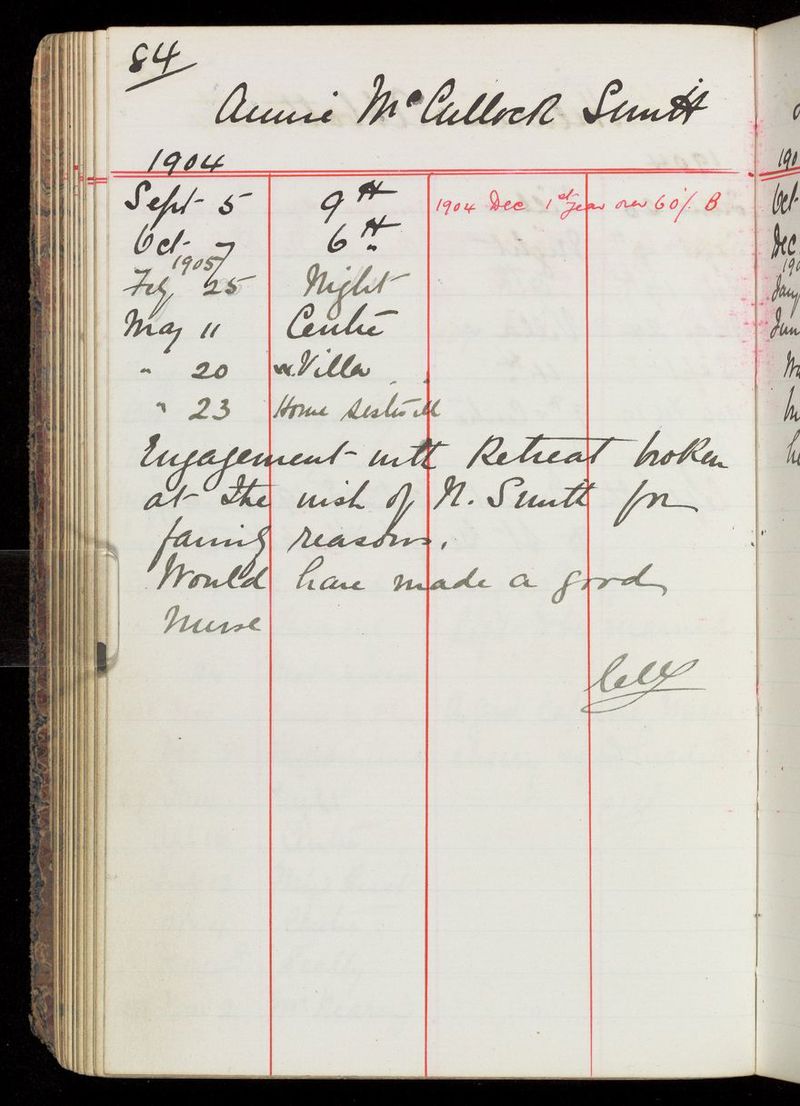 84
Annie McCullock Smith
1904
Sept 5 9th 1904 Dec 1st Year over 60% B
Oct 7 6th "
1905
Feb 25 Night
May 11 Centre
" 20 w. Villa
" 23 Home sister ill
Engagement with Retreat broken
at the wish of N. Smith for
family reasons.
Would have made a good
Nurse
190
Oct
Dec
190
Jany